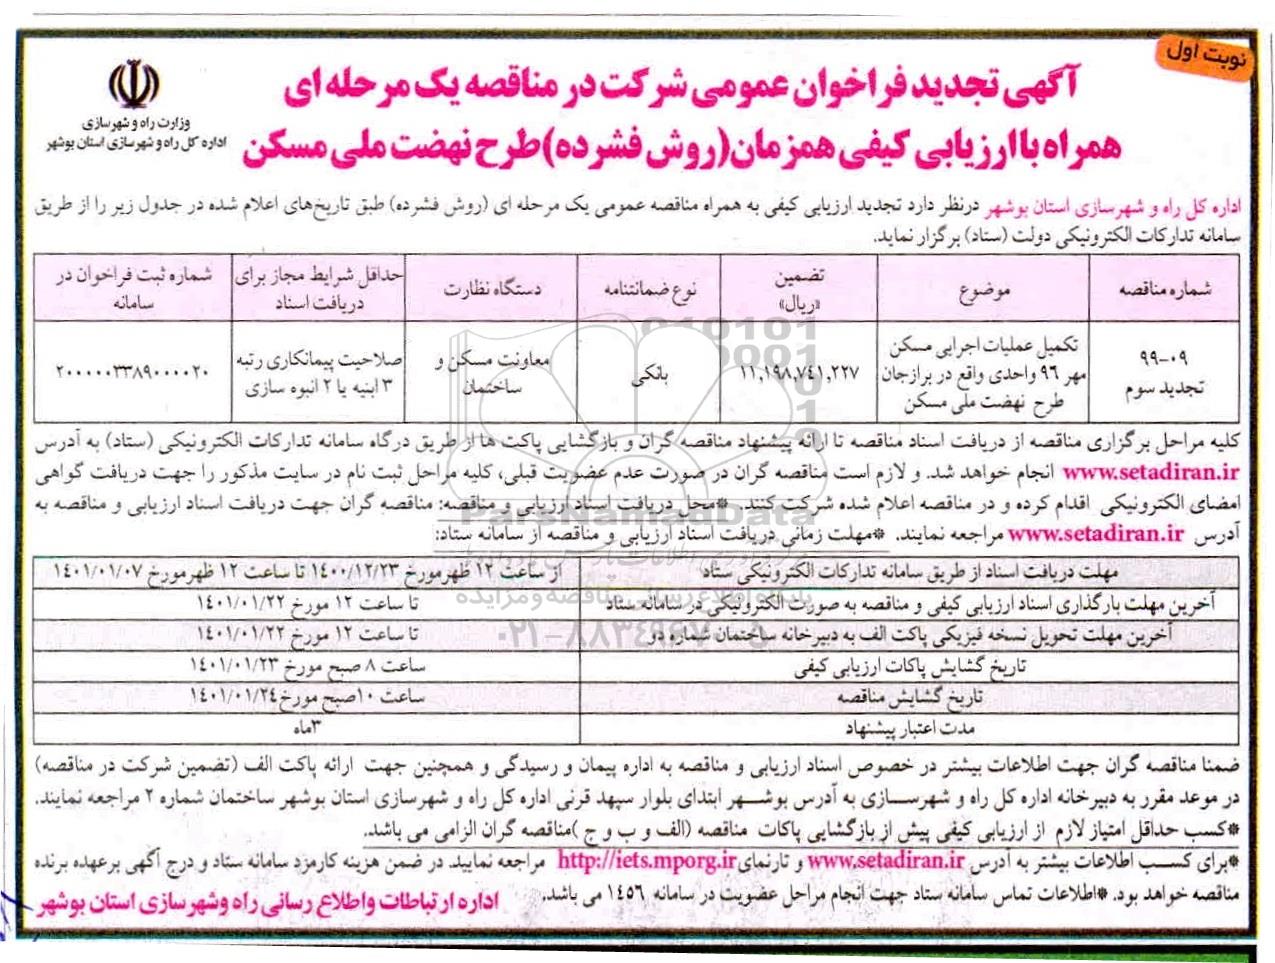 نوبت اول
وزارت راه و شهرسازی
اداره کل راه و شهرسازی استان بوشهر
آگهی تجدید فراخوان عمومی شرکت در مناقصه یک مرحله ای
همراه با ارزیابی کیفی همزمان(روش فشرده)طرح نهضت ملی مسکن
اداره کل راه و شهرسازی استان بوشهر درنظر دارد تجدید ارزیابی کیفی به همراه مناقصه عمومی یک مرحله ای (روش فشرده) طبق تاریخ‌های اعلام شده در جدول زیر را از طریق
سامانه تدارکات الکترونیکی دولت (ستاد) برگزار نماید.
شماره مناقصه | موضوع | تضمین «ریال» | نوع ضمانتنامه | دستگاه نظارت | حداقل شرایط مجاز برای دریافت اسناد | شماره ثبت فراخوان در سامانه
۹۹-۰۹ تجدید سوم | تکمیل عملیات اجرایی مسکن مهر ۹۶ واحدی واقع در برازجان طرح نهضت ملی مسکن | ۱۱,۱۹۸,۷۴۱,۲۲۷ | بانکی | معاونت مسکن و ساختمان | صلاحیت پیمانکاری رتبه ۳ ابنیه یا ۲ انبوه سازی | ۲۰۰۰۰۰۳۳۸۹۰۰۰۰۲۰
کلیه مراحل برگزاری مناقصه از دریافت اسناد مناقصه تا ارائه پیشنهاد مناقصه گران و بازگشایی پاکت ها از طریق درگاه سامانه تدارکات الکترونیکی (ستاد) به آدرس
www.setadiran.ir انجام خواهد شد. و لازم است مناقصه گران در صورت عدم عضویت قبلی، کلیه مراحل ثبت نام در سایت مذکور را جهت دریافت گواهی
امضای الکترونیکی اقدام کرده و در مناقصه اعلام شده شرکت کنند. *محل دریافت اسناد ارزیابی و مناقصه: مناقصه گران جهت دریافت اسناد ارزیابی و مناقصه به
آدرس www.setadiran.ir مراجعه نمایند. *مهلت زمانی دریافت اسناد ارزیابی و مناقصه از سامانه ستاد:
مهلت دریافت اسناد از طریق سامانه تدارکات الکترونیکی ستاد | از ساعت ۱۲ ظهرمورخ ۱۴۰۰/۱۲/۲۳ تا ساعت ۱۲ ظهرمورخ ۱۴۰۱/۰۱/۰۷
آخرین مهلت بارگذاری اسناد ارزیابی کیفی و مناقصه به صورت الکترونیکی در سامانه ستاد | تا ساعت ۱۲ مورخ ۱۴۰۱/۰۱/۲۲
آخرین مهلت تحویل نسخه فیزیکی پاکت الف به دبیرخانه ساختمان شماره دو | تا ساعت ۱۲ مورخ ۱۴۰۱/۰۱/۲۲
تاریخ گشایش پاکات ارزیابی کیفی | ساعت ۸ صبح مورخ ۱۴۰۱/۰۱/۲۳
تاریخ گشایش مناقصه | ساعت ۱۰صبح مورخ۱۴۰۱/۰۱/۲۴
مدت اعتبار پیشنهاد | ۳ماه
ضمنا مناقصه گران جهت اطلاعات بیشتر در خصوص اسناد ارزیابی و مناقصه به اداره پیمان و رسیدگی و همچنین جهت ارائه پاکت الف (تضمین شرکت در مناقصه)
در موعد مقرر به دبیرخانه اداره کل راه و شهرسازی به آدرس بوشهر ابتدای بلوار سپهد قرنی اداره کل راه و شهرسازی استان بوشهر ساختمان شماره ۲ مراجعه نمایند.
*کسب حداقل امتیاز لازم از ارزیابی کیفی پیش از بازگشایی پاکات مناقصه (الف و ب و ج )مناقصه گران الزامی می باشد.
*برای کسب اطلاعات بیشتر به آدرس www.setadiran.ir و تارنمای http://iets.mporg.ir مراجعه نمایید. در ضمن هزینه کارمزد سامانه ستاد و درج آگهی برعهده برنده
مناقصه خواهد بود. *اطلاعات تماس سامانه ستاد جهت انجام مراحل عضویت در سامانه ۱۴۵۶ می باشد.
اداره ارتباطات واطلاع رسانی راه وشهرسازی استان بوشهر
ParsNamadData
پایگاه اطلاع رسانی مناقصه و مزایده
۰۲۱-۸۸۳۴۹۶۷۰-۵